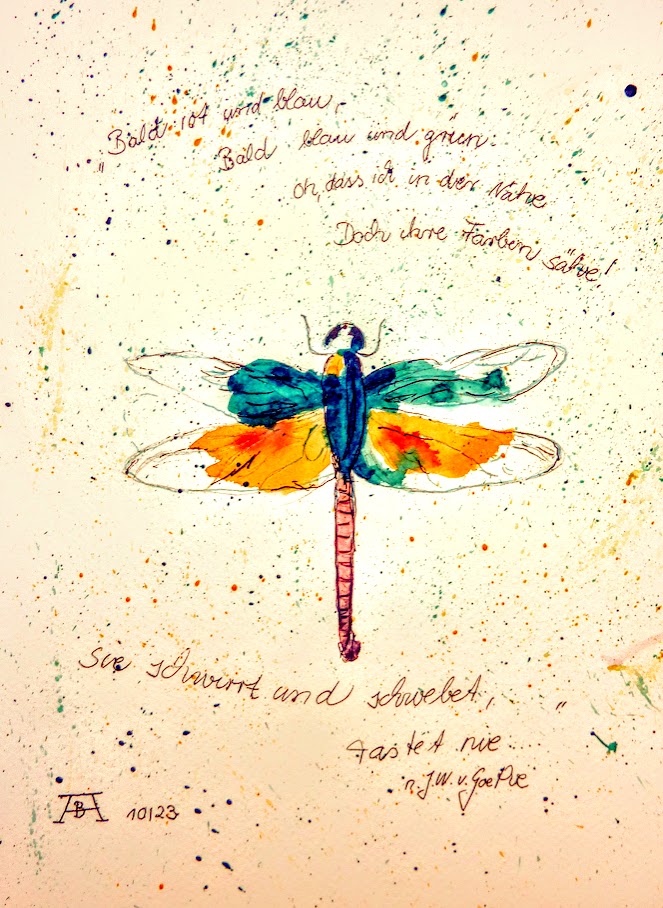 „Bald rot und blau,
Bald blau und grün.
Oh, dass ich in der Nähe
Doch ihre Farben sähe!
Sie schwirrt und schwebet, "
rastet nie
n. J.W. v. Goethe
10/23